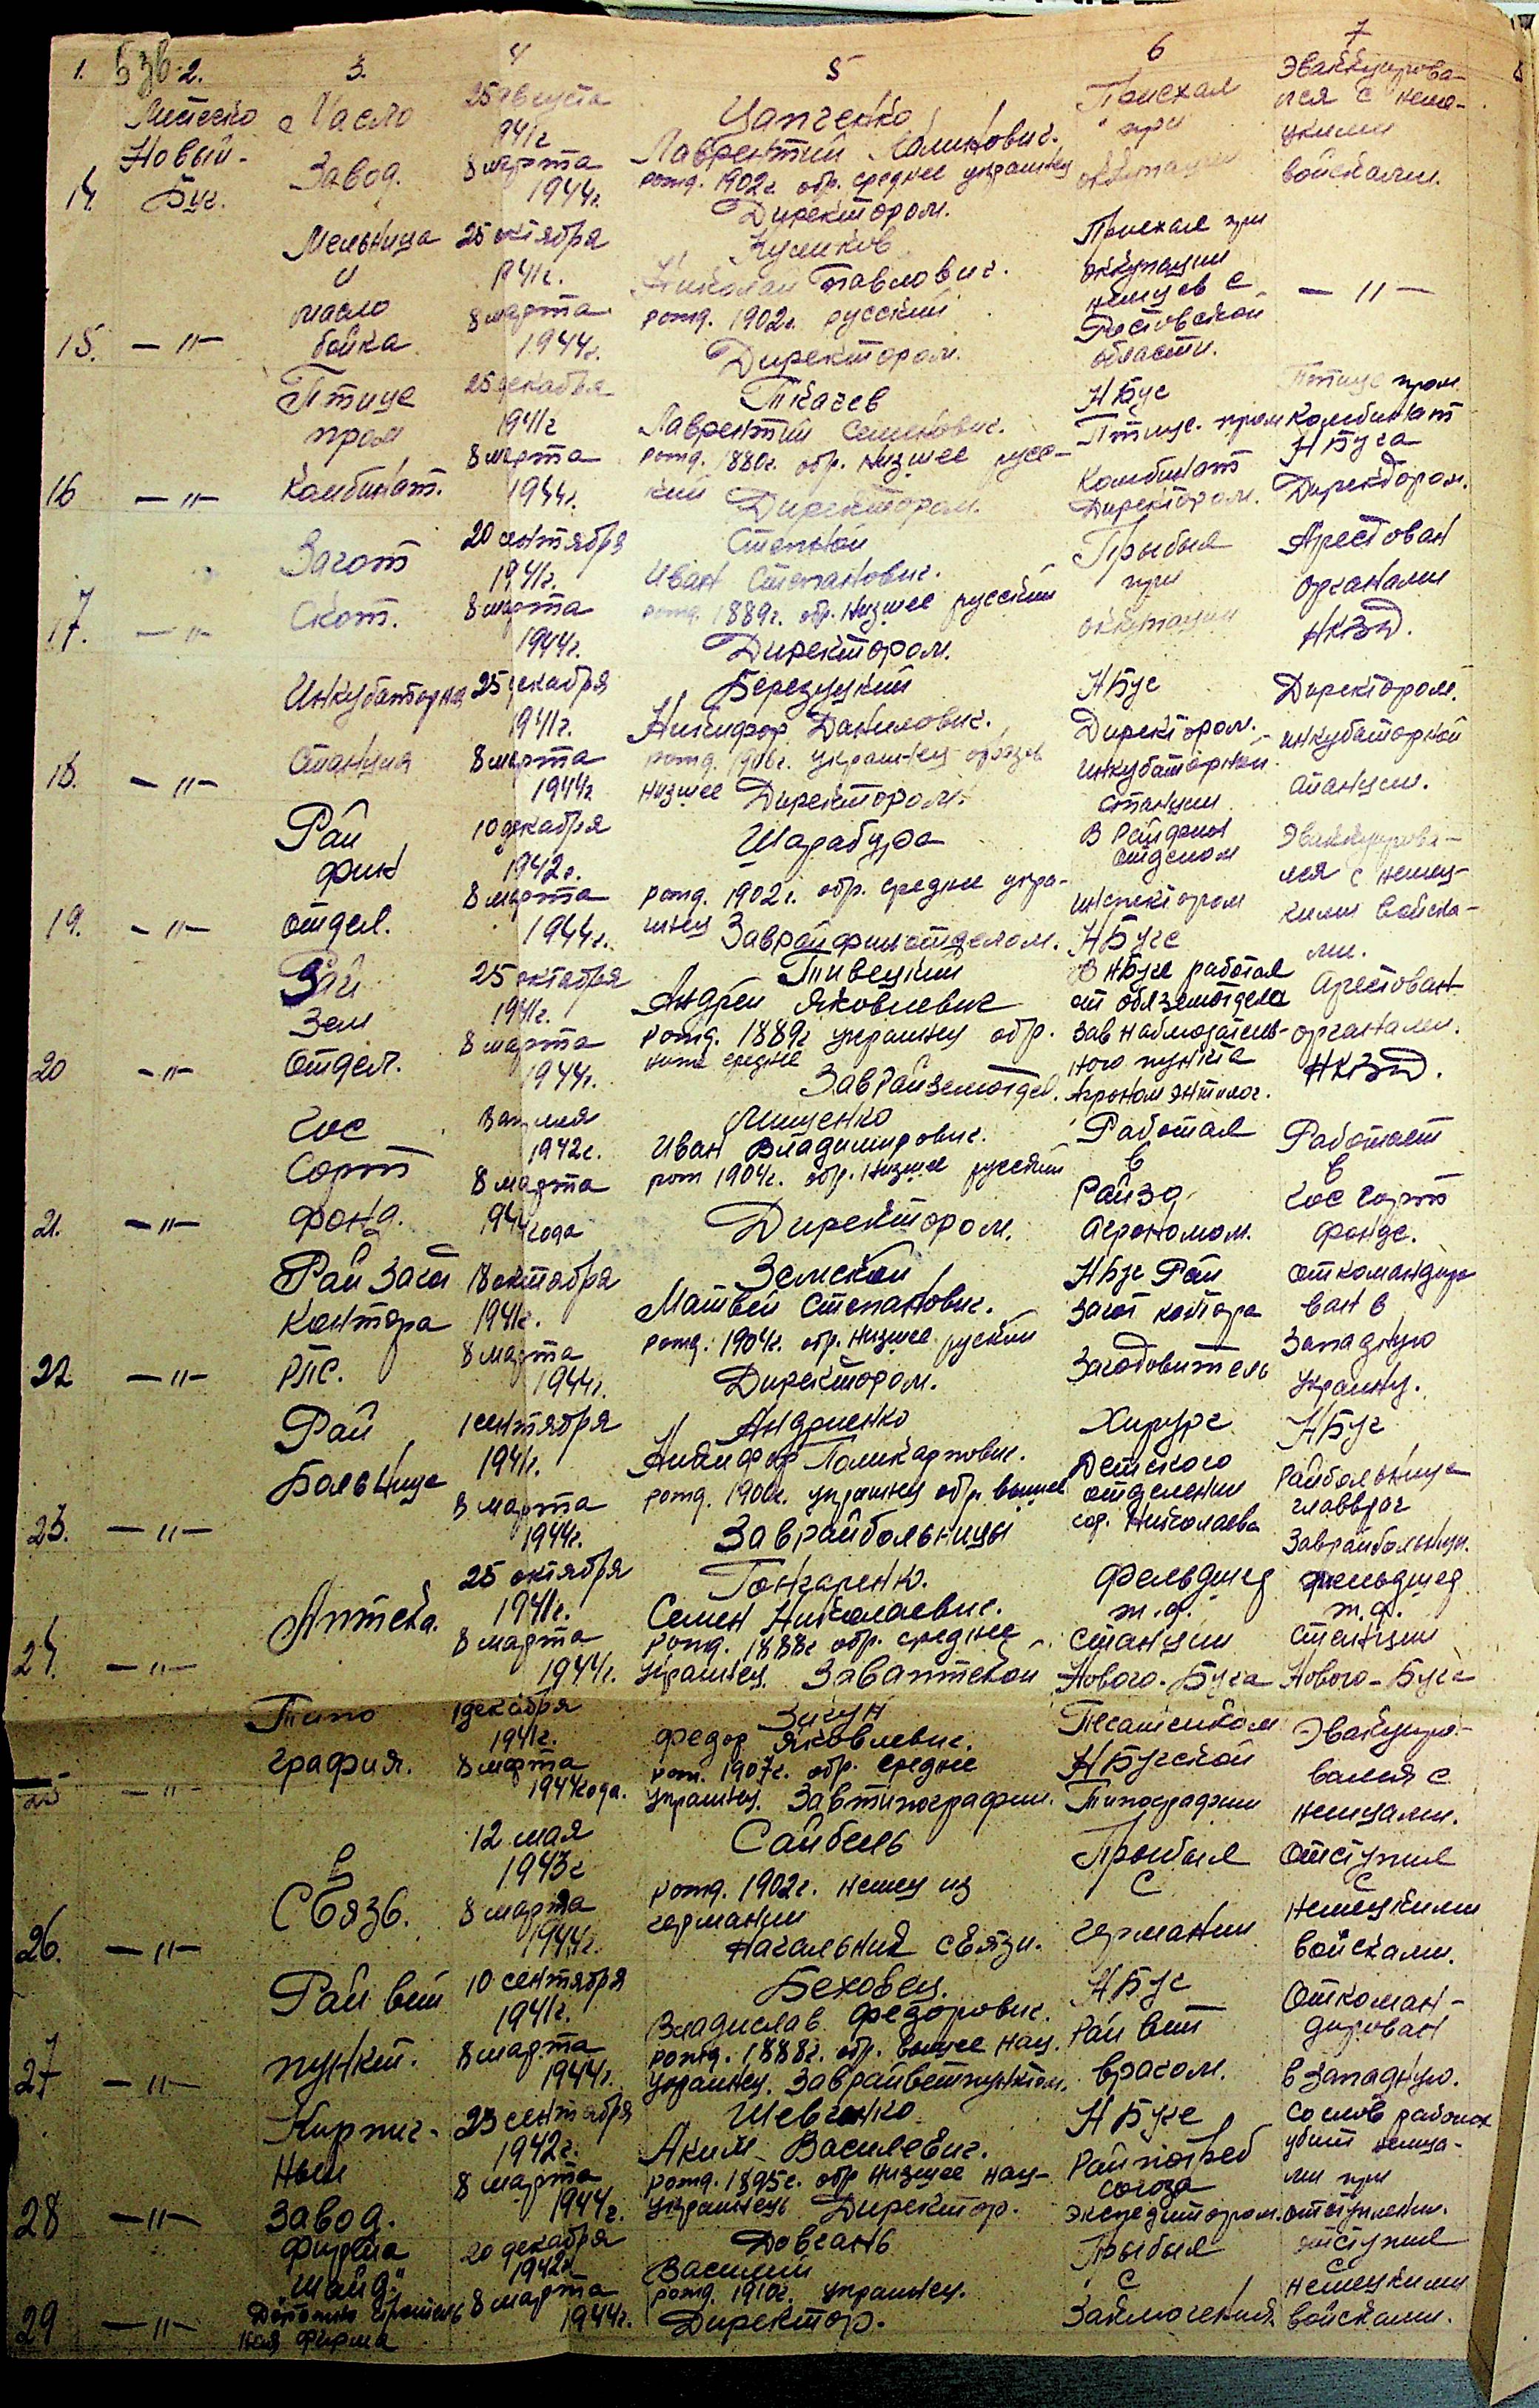 1. 2. 3. 4 5 6 7
Местечко
Новый-
Буг.
14.
Масло
Завод.
25 августа
1941г
8 марта
1944г.
Цапченко
Лаврентий
рожд. 1902г. обр. среднее украинец
Директором.
Приехал
при
Эваккуирова-
лся с неме-
цкими
войсками.
15. — " —
Мельница
и
масло
бойка
25 октября
1941г.
8 марта
1944г.
Куликов
Николай Павлович.
рожд. 1902г. русский
Директором.
Приехал при
оккупации
немцев с
Ростовской
области.
— " —
16 — " —
Птице
пром
Комбинат.
25 декабря
1941г
8 марта
1944г.
Ткачев
Лаврентий Семенович.
рожд. 1880г. обр. Низшее русс-
кий
Директором.
НБуг
Птице. пром
Комбинат
Директором.
Птице пром
Комбинат
НБуга
Директором.
17. — " —
Загот
Скот.
20 сентября
1941г.
8 марта
1944г.
Степной
Иван Степанович.
рожд. 1889г. обр. Низшее русский
Директором.
Прибыл
при
оккупации
Арестован
органами
НКВД.
18. — " —
Инкубаторная
станция
25 декабря
1941г.
8 марта
1944г
Березуцкий
Никифор Данилович.
рожд. 1906г. украинец образов
низшее Директором.
НБуг
Директором.
инкубаторной
станции
Директором.
инкубаторной
станции.
19. — " —
Рай
фин
отдел.
10 декабря
1942г.
8 марта
1944г.
Шарабура
рожд. 1902г. обр. среднее укра-
инец
Заврайфинотделом.
В Райфин
отделом
инспектором
НБуге
Эваккуирова-
лся с немец-
кими войска-
ми.
20 — " —
Рай
Зем
Отдел.
25 октября
1941г.
8 марта
1944г.
Тивецкий
Андрей Яковлевич
рожд. 1889г украинец обр.
среднее
ЗавРайземотдел.
В НБуге работал
от облземотдела
Зав наблюдатель-
ного пункта
Агроном энтомолог.
Арестован
органами.
НКВД.
21. — " —
Гос
Сорт
фонд.
1942г.
8 марта
1944года
Мищенко
Иван Владимирович.
рожд 1904г. обр. Низшее русский
Директором.
Работал
в
Райзо
агрономом.
Работает
в
Гос сорт
фонде.
22 — " —
Рай Загот
Контора
РПС.
18 октября
1941г.
8 марта
1944г.
Земской
Матвей Степанович.
рожд. 1904г. обр. низшее русский
Директором.
НБуг Рай
загот контора
Заготовитель
откомандиро
ван в
Западную
украину.
23. — " —
Рай
Больница
1 сентября
1941г.
8 марта
1944г.
Андриенко
Никифор Поликарпович.
рожд. 1900г. украинец обр. высшее
Заврайбольницы
Хирург
Детского
отделения
гор. Николаева
НБуг
Райбольница
главврач
Заврайбольницы.
24. — " —
Аптека.
25 октября
1941г.
8 марта
1944г.
Гончаренко.
Семен Николаевич.
рожд. 1888г обр. среднее
украинец. Завaптекой
Фельдшер
ж.д.
станции
Нового-Буга
Фельдшер
ж.д.
станции
Нового-Буга
25 — " —
Типо
графия.
1 декабря
1941г.
8 марта
1944года.
Зигун
Федор Яковлевич.
рожд. 1907г. обр. среднее
украинец. Завтипографии.
НБугской
Типографии
Эваккуиро-
вался с
немцами.
26. — " —
Связь.
12 мая
1943г
8 марта
1944г.
Сайбель
рожд. 1902г. немец из
германии
Начальник связи.
Прибыл
С
германии
Отступил
с
немецкими
войсками.
27 — " —
Рай вет
пункт.
10 сентября
1941г.
8 марта
1944г.
Беховец.
Владислав Федорович.
рожд. 1888г. обр. высшее нац.
украинец. Заврайветпунктом.
НБуг
Рай вет
врачом.
Откоман-
дирован
в западную.
28 — " —
Кирпич-
ный
Завод.
23 сентября
1942г.
8 марта
1944г.
Шевченко
Аким Василевич.
рожд. 1895г. обр низшее нац-
украинець Директор.
НБуге
Райпотреб
союза
экспедитором.
Со слов рабочих
убит немца-
ми при
отступлении.
29 — " —
Фирма
"Шайд"
ная фирма
20 декабря
1942г
8 марта
1944г.
Довгань
Василий
рожд. 1910г. украинец.
Директор.
Прибыл
С
Заключения
отступил
с
немецкими
войсками.